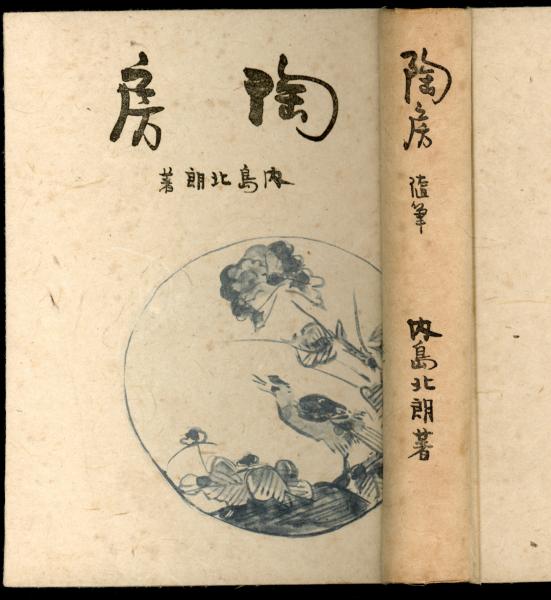 陶房
内島北朗著
陶房
随筆
内島北朗著